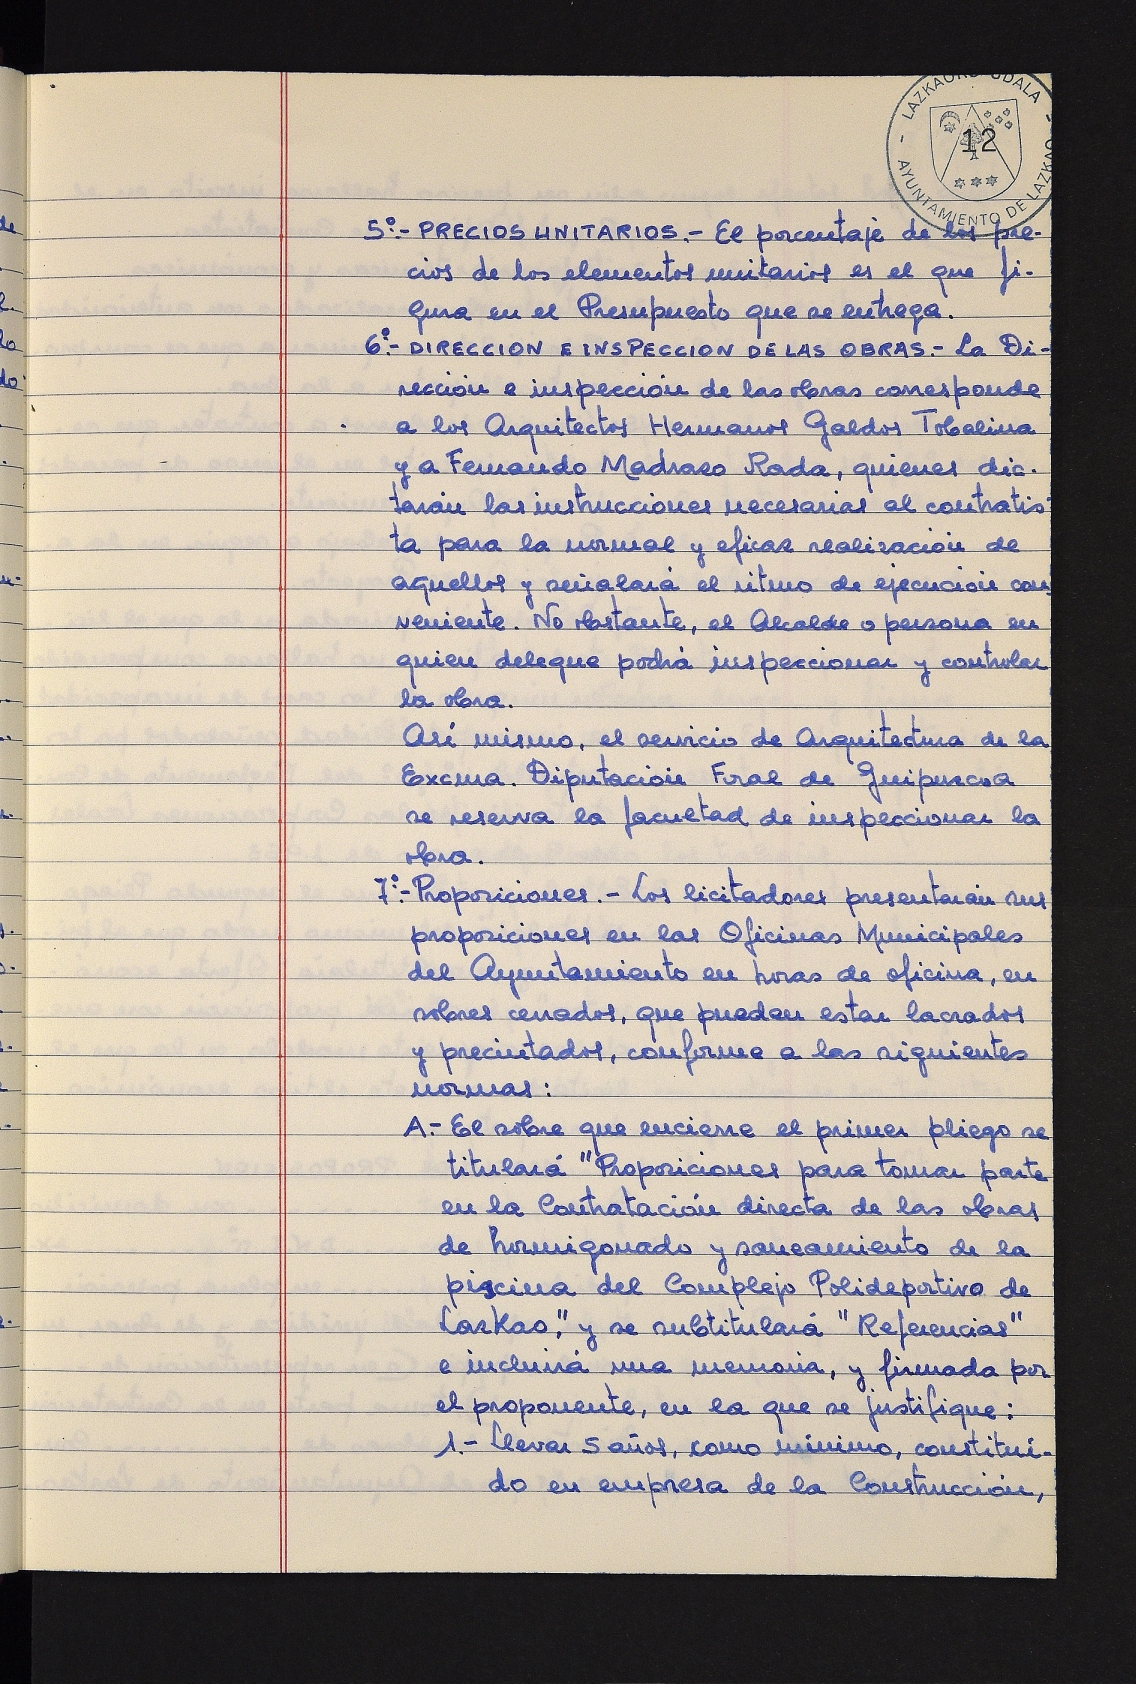 LAZKAOKO UDALA
12
AYUNTAMIENTO DE LAZKAO
5º.- PRECIOS UNITARIOS.- El porcentaje de los pre-
cios de los elementos unitarios es el que fi-
gura en el Presupuesto que se entrega.
6º.- DIRECCION E INSPECCION DE LAS OBRAS.- La Di-
rección e inspección de las obras corresponde
a los Arquitectos Hermanos Galdos Tobalina
y a Fernando Madrazo Rada, quienes dic-
tarán las instrucciones necesarias al contratis-
ta para la normal y eficaz realización de
aquellos y señalará el ritmo de ejecución con-
veniente. No obstante, el Alcalde o persona en
quien delegue podrá inspeccionar y controlar
la obra.
Así mismo, el servicio de Arquitectura de la
Excma. Diputación Foral de Guipuzcoa
se reserva la facultad de inspeccionar la
obra.
7º.- Proposiciones.- Los licitadores presentarán sus
proposiciones en las Oficinas Municipales
del Ayuntamiento en horas de oficina, en
sobres cerrados, que pueden estar lacrados
y precintados, conforme a las siguientes
normas:
A.- El sobre que encierre el primer pliego se
titulará "Proposiciones para tomar parte
en la Contratación directa de las obras
de hormigonado y saneamiento de la
piscina del Complejo Polideportivo de
Lazkao," y se subtitulará "Referencias"
e incluirá una memoria, y firmada por
el proponente, en la que se justifique:
1.- Llevar 5 años, como mínimo, constituí-
do en empresa de la Construcción,